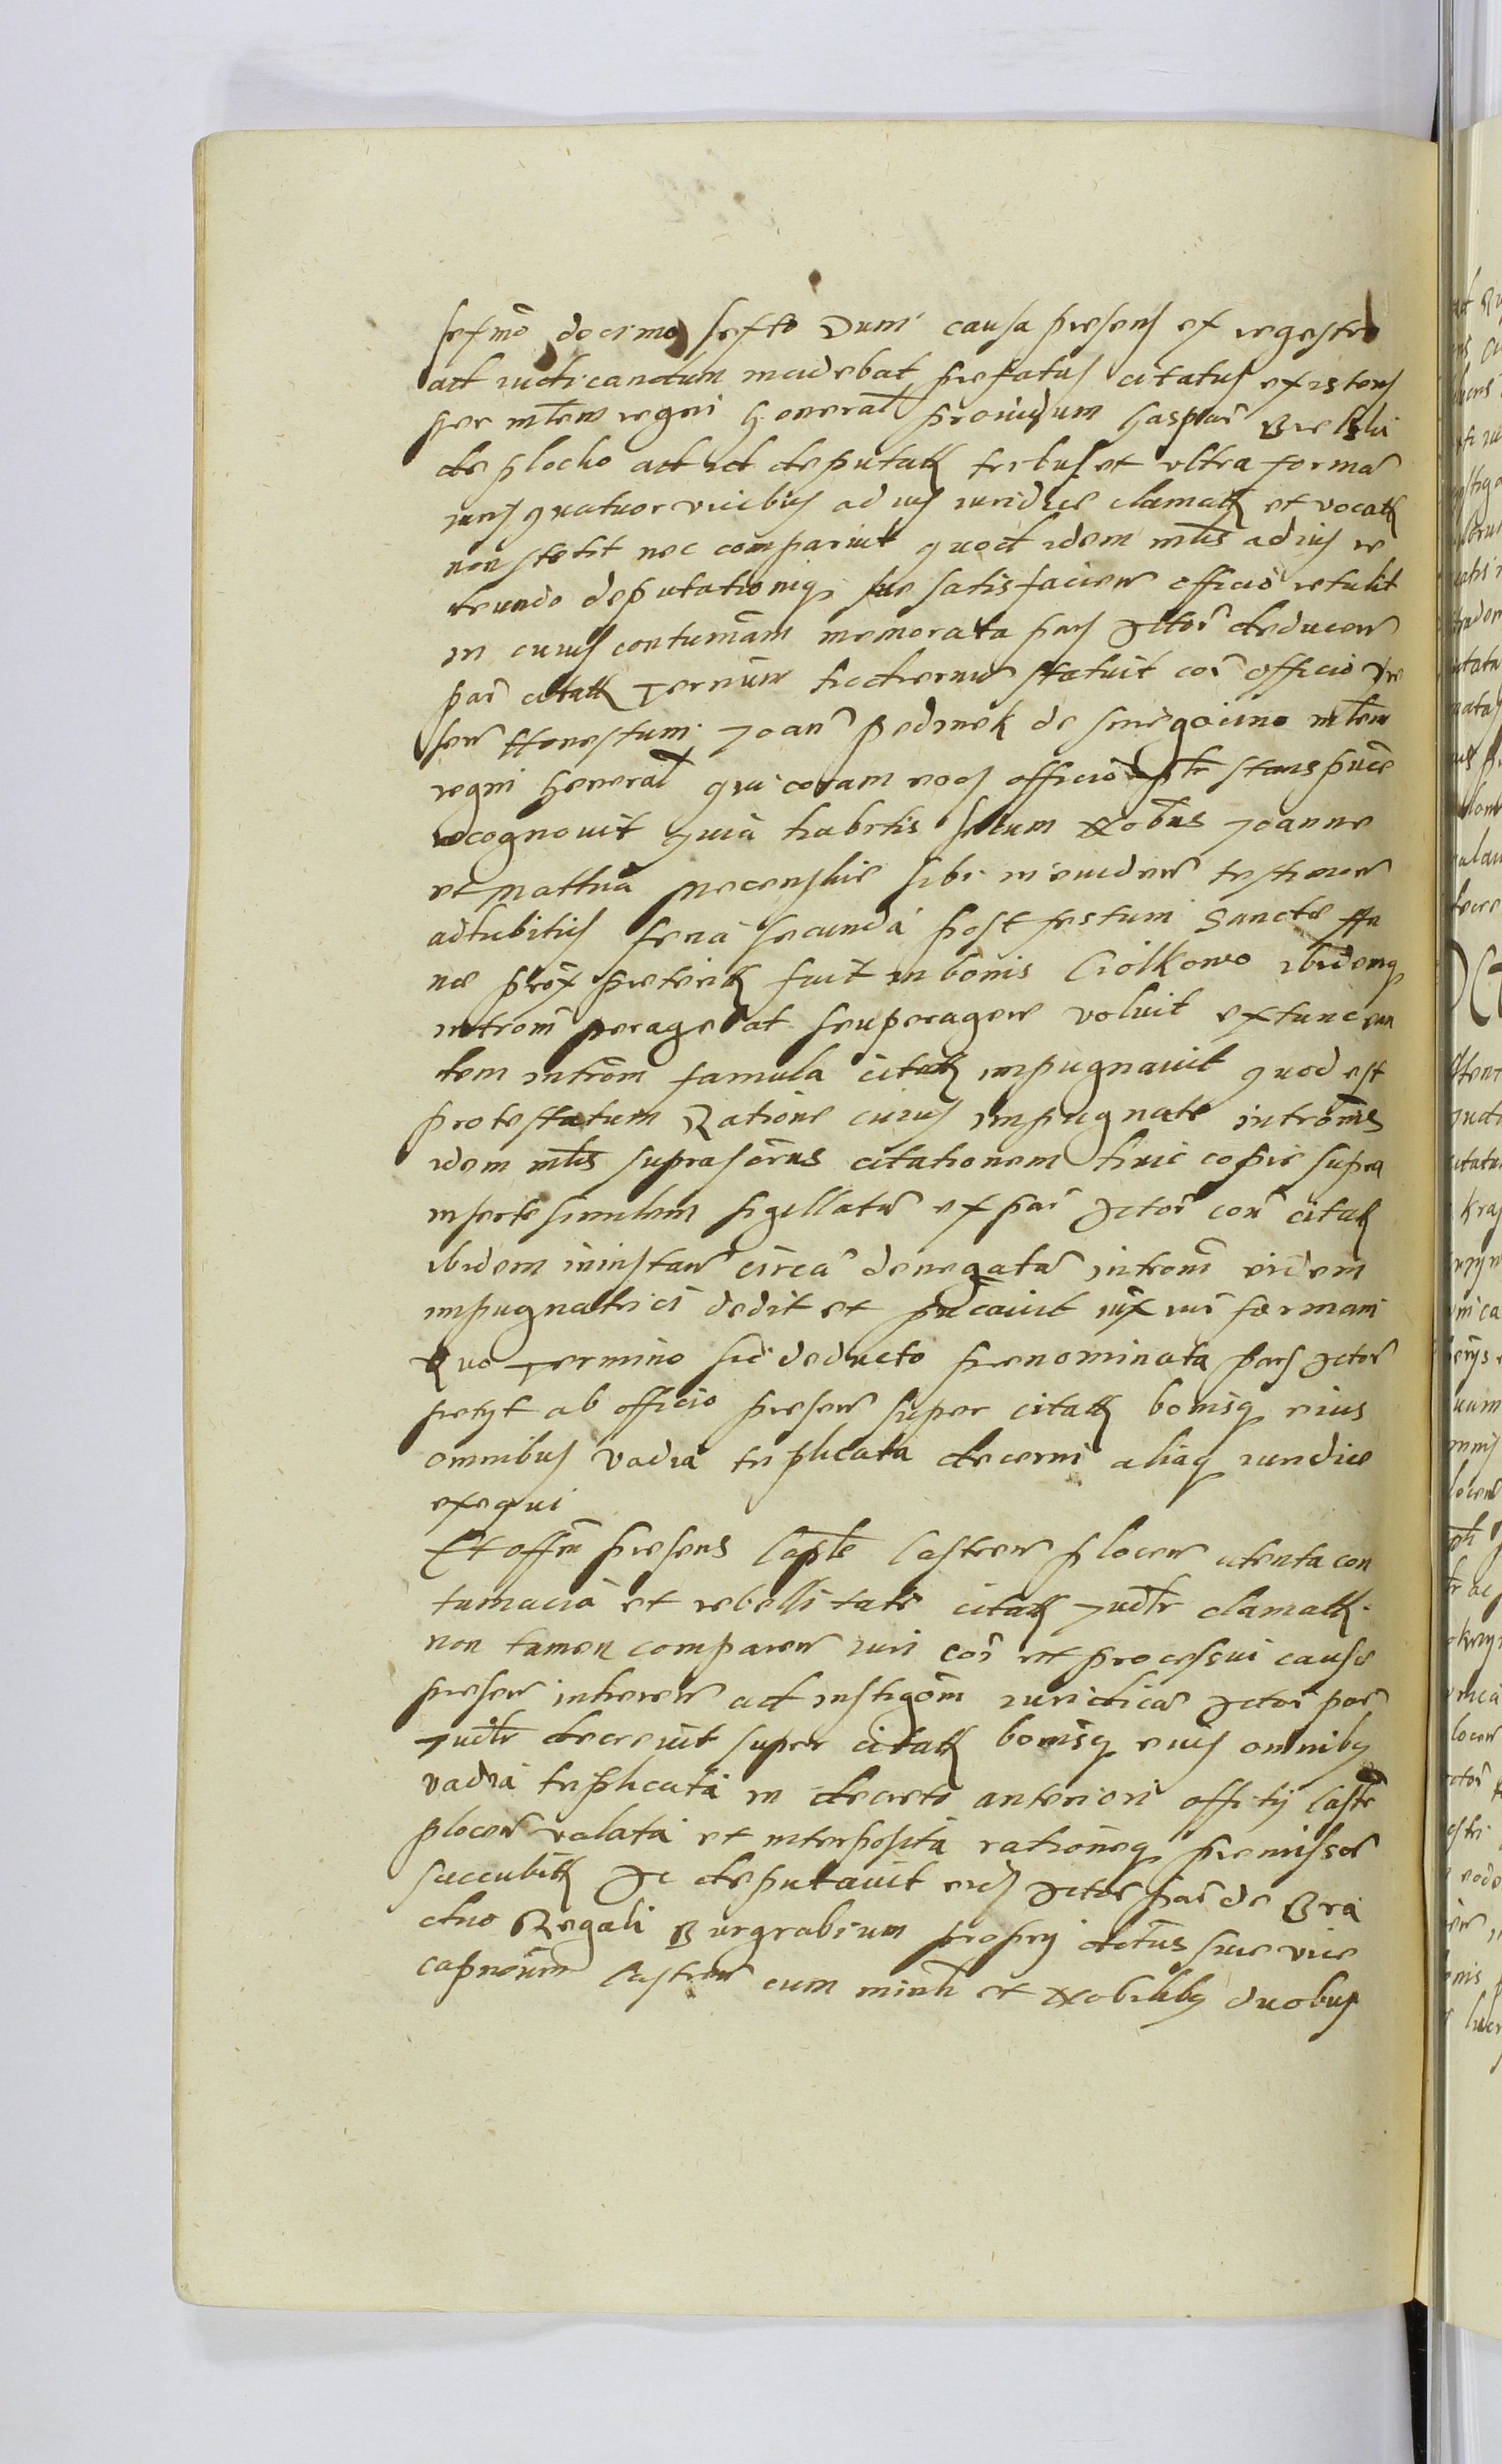 sexmo decimo sexto Dum causa presens ex regestro
ad iudicandum incidebat prefatus citatus existens
per mlem regni General providum Gaspar Bielski
de plocko ad id deputatt tribus et ultra forma
iuris quatuor vicibus ad ius iuridice clamatt et vocatt
non stetit nec comparuit quod idem mlis ad ius re
deundo deputationiq sue satisfacien officio retulit
in cuius contumam memorata pars actor deducen
par citatt Terminu hodiernu statuit cor officio pre
sen Honestum Joan Pedinek de mlem
regni General qui coram eodem officio plr stans puce
recognovit quia habitis secum Nobus Joanne
et Mattia sibi in evidens testimon
adhibitis feria secunda post festum Sancte An
ne prox preterit fuit in bonis Ciolkowo ibidemq
introm peragebat seu peragere voluit extunc ean
dem introm famula citatt impugnavit quod est
protestatum Ratione cuius impugnate introms
idem mlis suprascrus citationem huic copie supra
inserte similem sigillata ex par actor con citatt
ibidem in instan circa denegata introm eidem
impugnatrici dedit et pucavit iux iur formam
Quo Termino sic deducto prenominata pars actor
petyt ab officio presen super citatt bonisq eius
omnibus vadia triplicata decerni aliaq iuridice
exequi
Et offm presens Caple Castren plocen atenta con
tumacia et rebellitate citatt Judlr clamatt
non tamen comparen iuri cor et processui cause
presen inheren ad instigom iuridica actor par
Judlr decrevit super citatt bonisq eius omnibq
vadia triplicata in decreto anteriori offity Castr
plocen valata et interposita rationeq premissor
succubitt Ac deputavit eids actor par de Bra
chio Regali Burgrabium propry dctus sue vice
capneum Castren cum minli et Nobilibq duobus